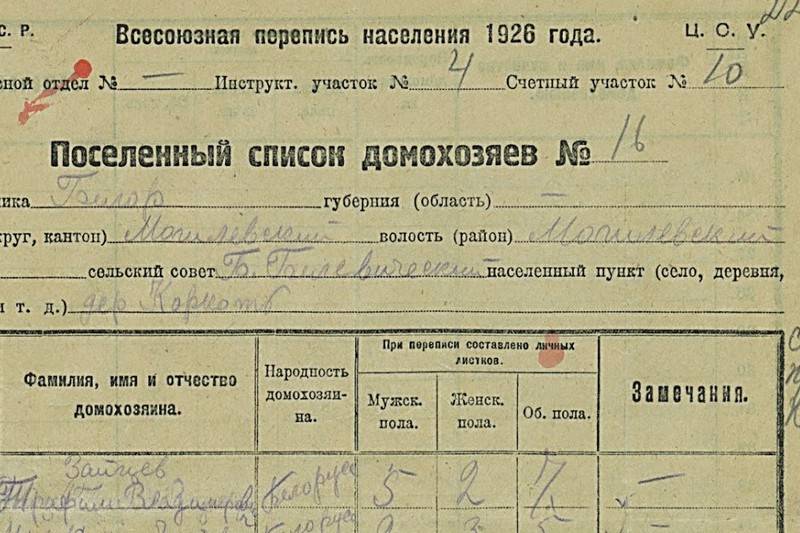 С. Р. Всесоюзная перепись населения 1926 года. Ц. С. У.
сной отдел № — Инструкт. участок № 4 Счетный участок № 10
Поселенный список домохозяев № 16
ика Белор губерния (область) —
руг, кантон) Могилевский волость (район) Могилевский
сельский совет населенный пункт (село, деревня,
и т. д.) дер
При переписи составлено личных
листков.
Фамилия, имя и отчество
домохозяина.
Народность
домохозяи-
на.
Мужск.
пола.
Женск.
пола.
Об. пола.
Замечания.
Зайцев
Трофим Владимиров Белорус 5 2 7 —
Белорус 3 5 —